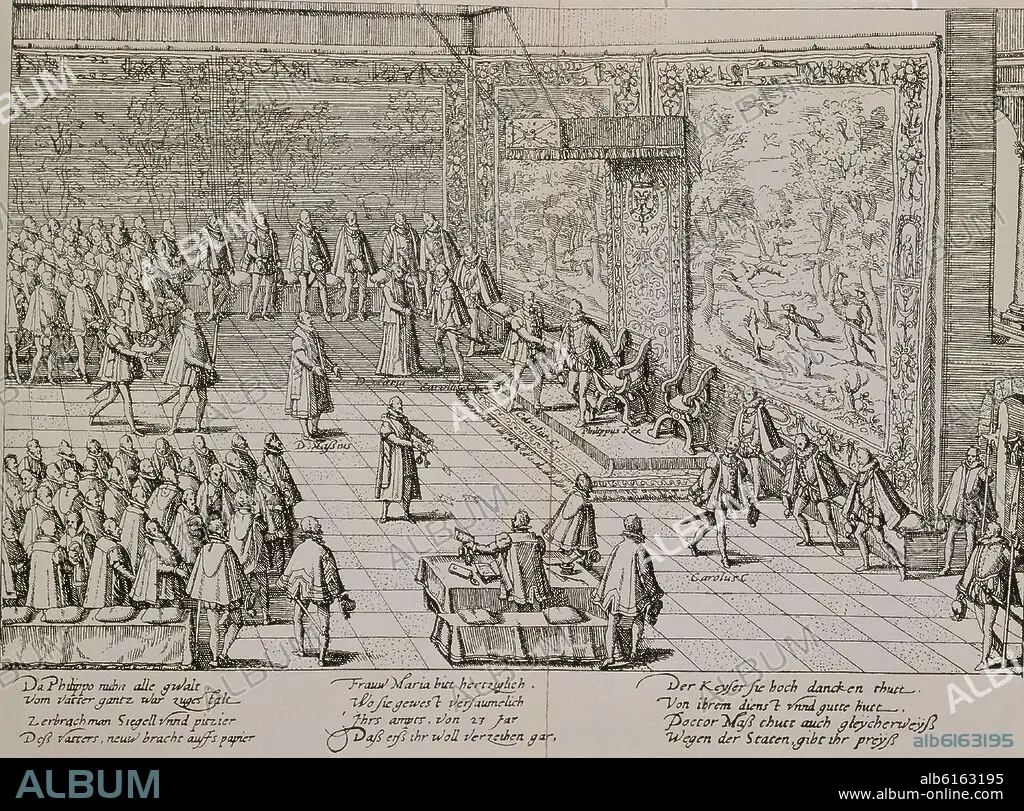 D. Maria
Carolus
Philippus R.
D. Masius
Carolus C
Da Philippo nuhn alle gwalt
Vom vatter gantz war zugestalt
Zerbrach man Siegell vnnd pitzier
Deß vatters, neuw bracht auffs papier
Frauw Maria bitt hertziglich.
Wo sie gewest versaumelich
Ihrs ampts, von 23 Jar
Daß erß ihr woll verzeihen gar,
Der Keyser sie hoch dancken thutt
Von ihrem dienst vnnd gutte hutt.
Doctor Maß thutt auch gleycherweyß
Wegen der Staten, gibt ihr preyß
ALBUM
alb6163195
ALBUM
alb6163195
www.album-online.com